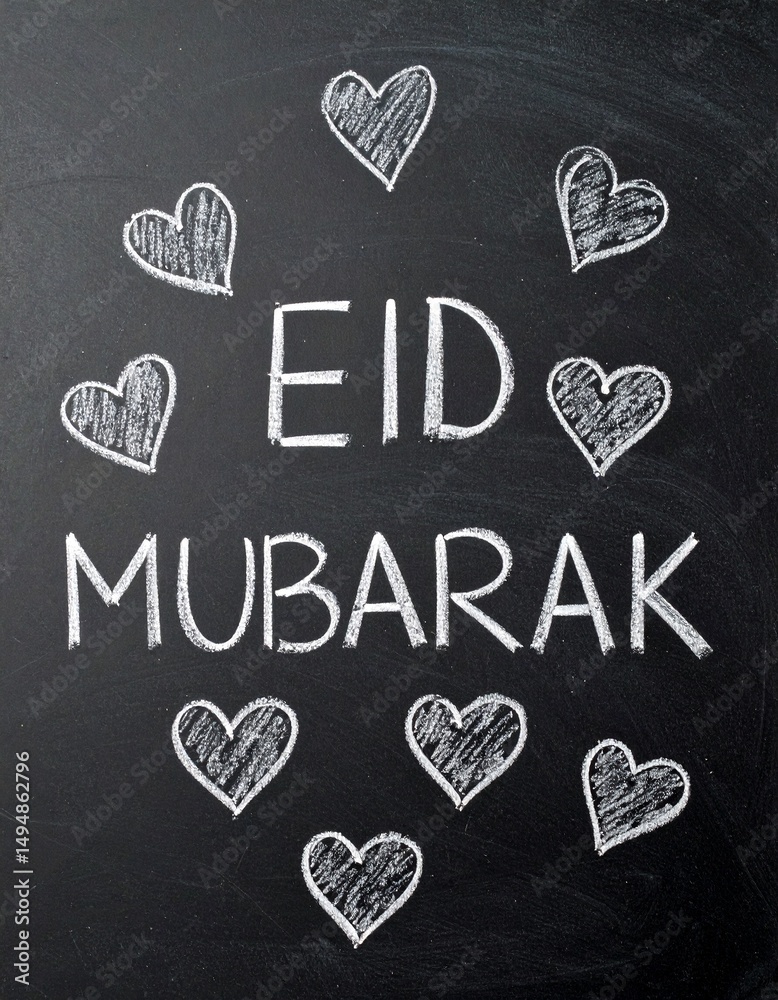 EID
MUBARAK
Adobe Stock | #1494862796